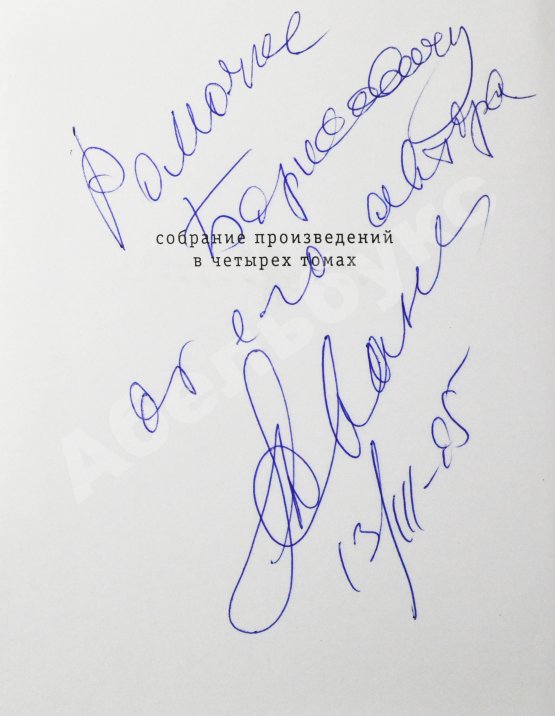 Ромочке
Борисовичу
от его автора
13/III-05
собрание произведений
в четырех томах
Абельбукс